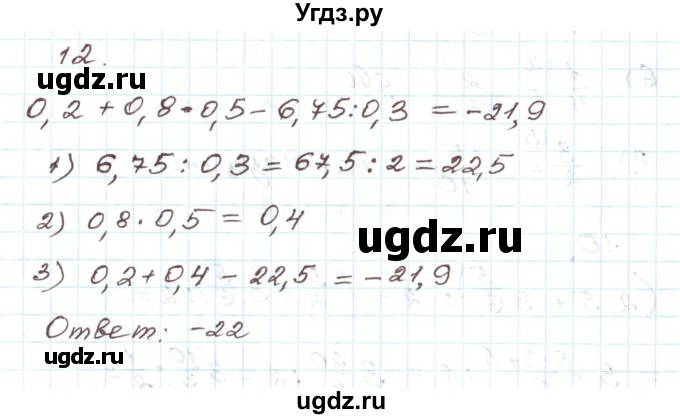 Угдз.ру
12.
ugdz.ru
0,2 + 0,8 • 0,5 - 6,75 : 0,3 = -21,9
1) 6,75 : 0,3 = 67,5 : 2 = 22,5
2) 0,8 · 0,5 = 0,4
ugdz.ru
3) 0,2 + 0,4 - 22,5 = -21,9
Ответ: -22
ugdz.ru
ugdz.ru